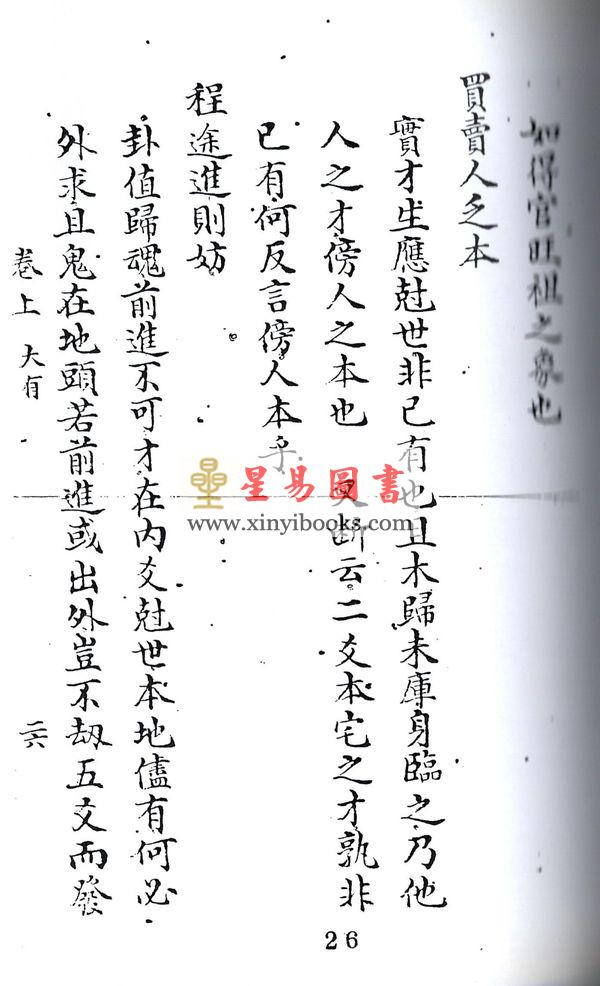 如得官旺祖之象也
買賣人乏本
實才生應尅世非己有也且木歸未庫身臨之乃他
人之才傍人之本也 又断云二爻本宅之才孰非
已有何反言傍人本乎
程途進則妨
卦值歸魂前進不可才在内爻尅世本地儘有何必
外求且鬼在地頭若前進或出外豈不刼五爻而發
卷上 大有 二六
星易圖書
www.xinyibooks.com
26